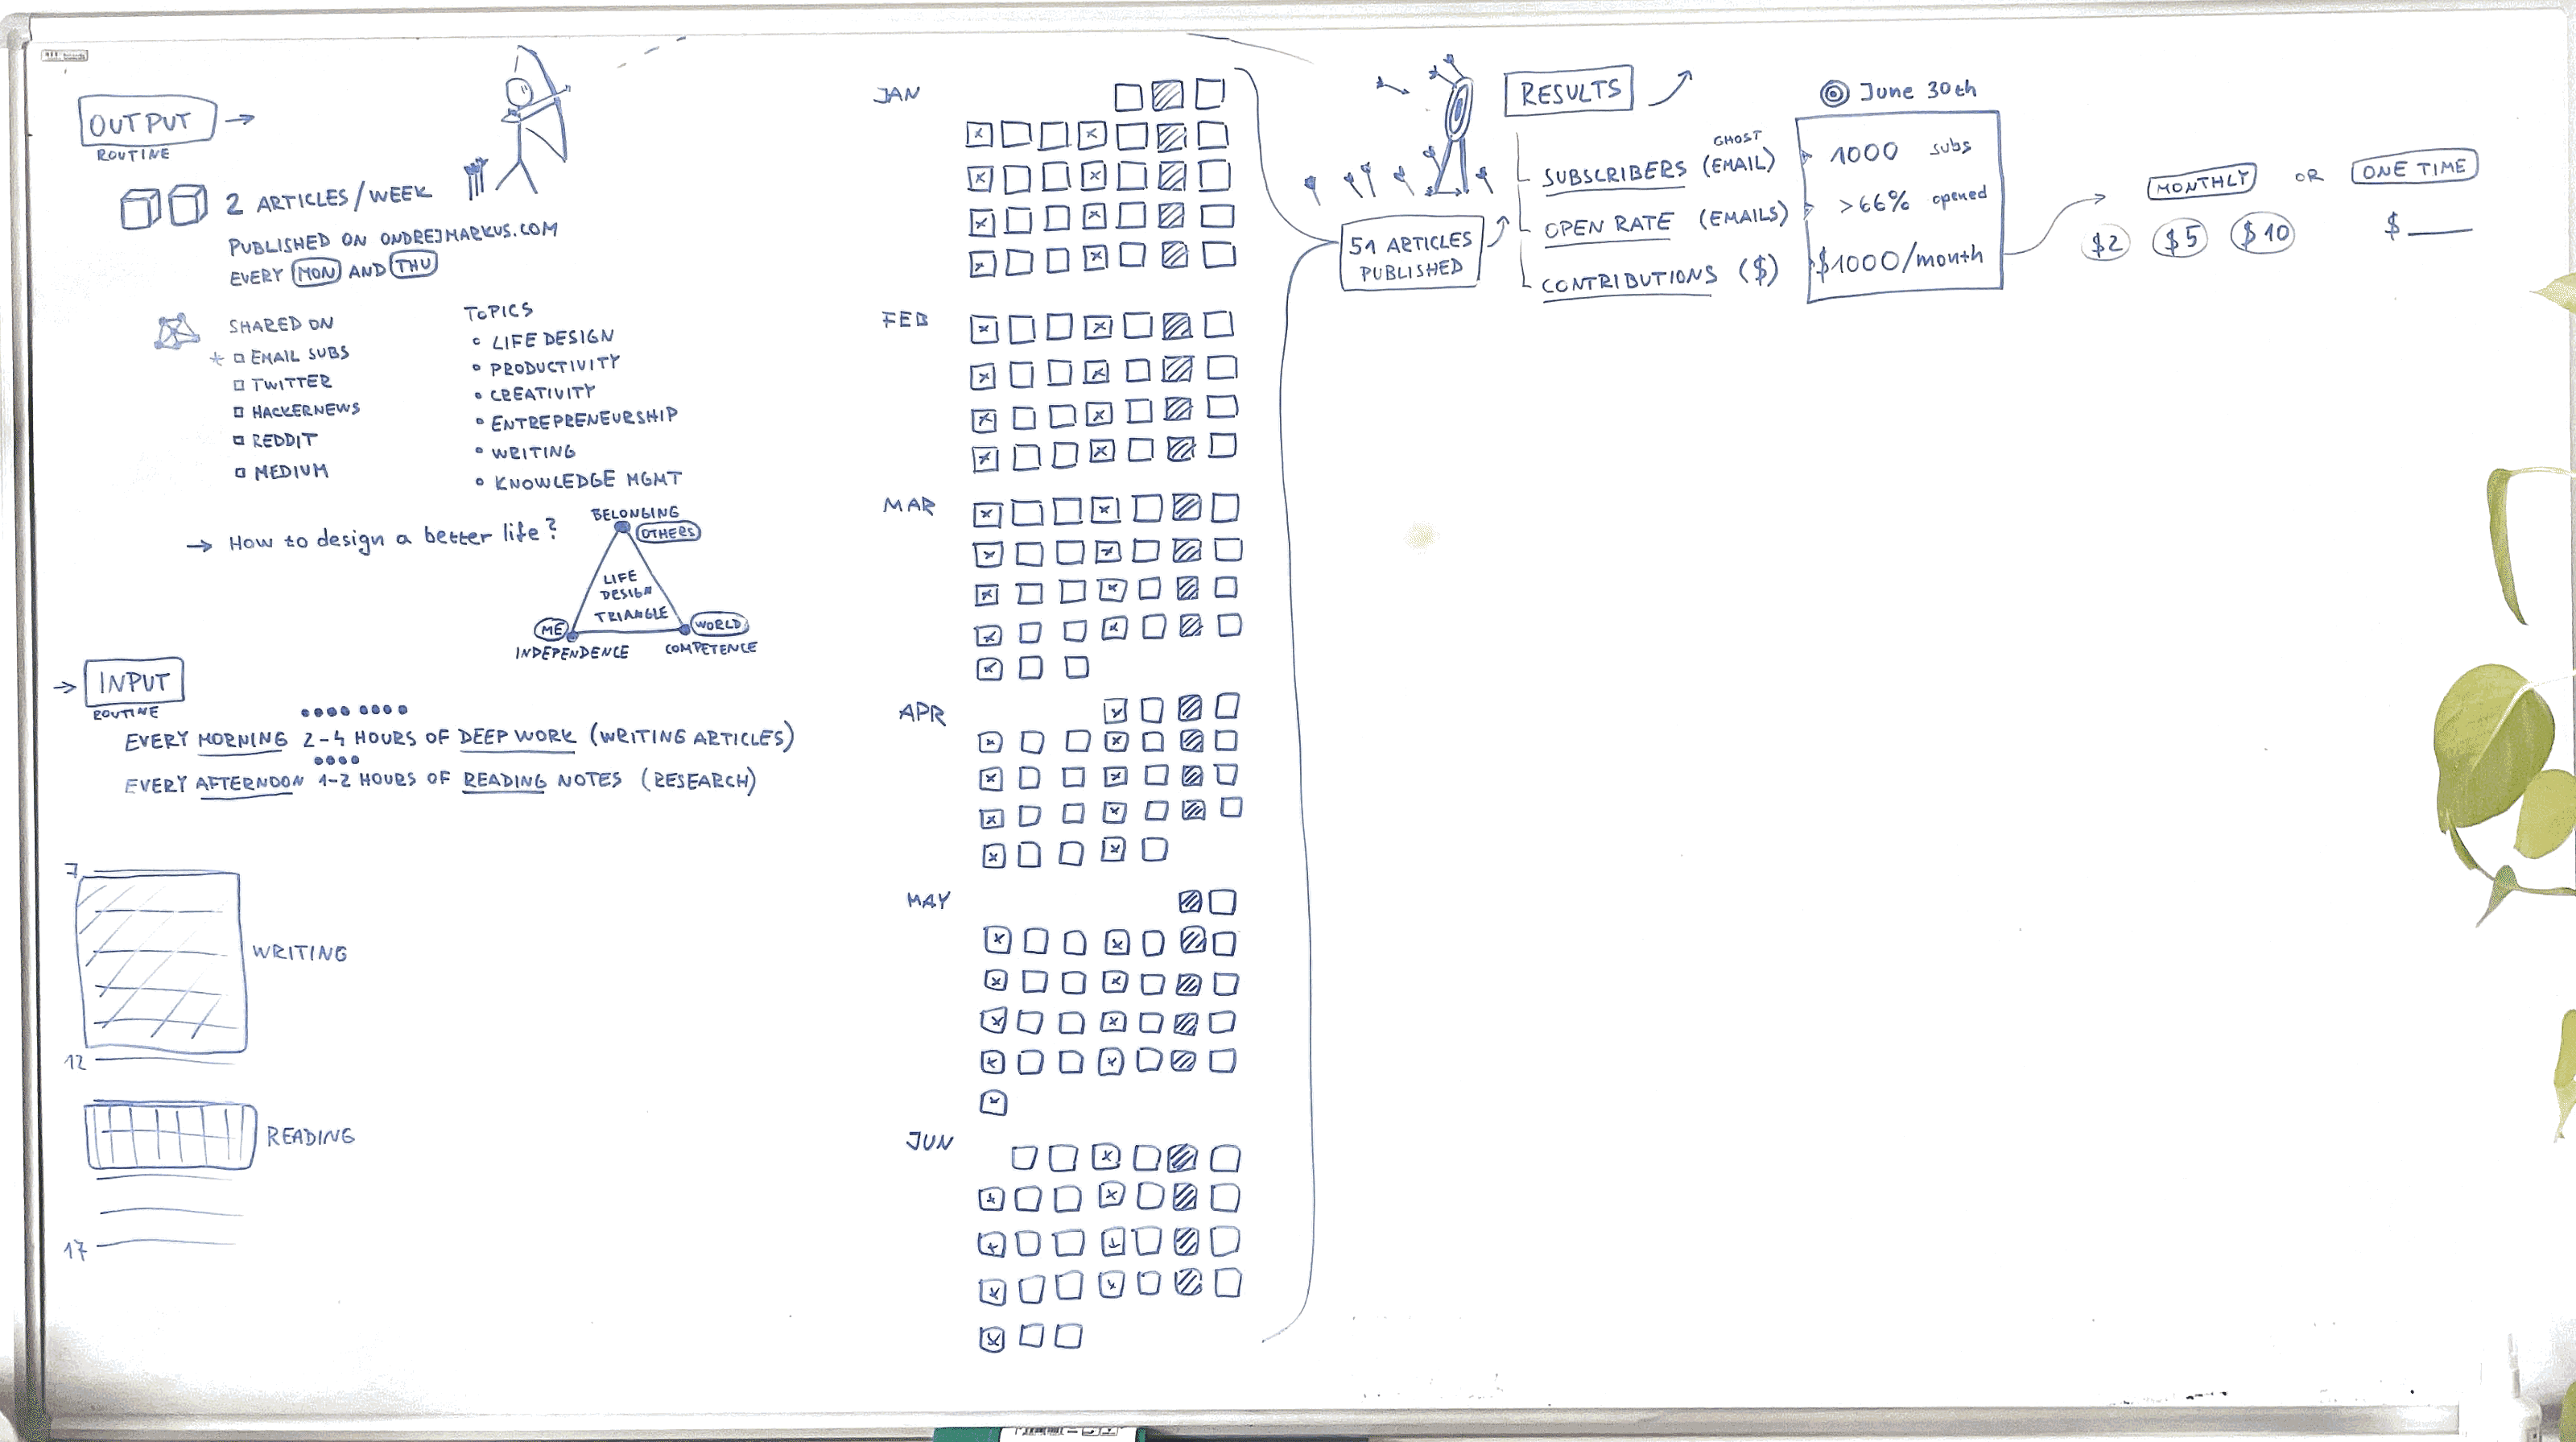 OUTPUT →
ROUTINE
2 ARTICLES/WEEK
PUBLISHED ON ONDREJMARKUS.COM
EVERY MON AND THU
SHARED ON
* □ EMAIL SUBS
□ TWITTER
□ HACKERNEWS
□ REDDIT
□ MEDIUM
TOPICS
• LIFE DESIGN
• PRODUCTIVITY
• CREATIVITY
• ENTREPRENEURSHIP
• WRITING
• KNOWLEDGE MGMT
→ How to design a better life?
BELONGING
OTHERS
LIFE
DESIGN
TRIANGLE
ME
WORLD
INDEPENDENCE
COMPETENCE
→ INPUT
ROUTINE
EVERY MORNING 2-4 HOURS OF DEEP WORK (WRITING ARTICLES)
EVERY AFTERNOON 1-2 HOURS OF READING NOTES (RESEARCH)
7
WRITING
12
READING
17
JAN
FEB
MAR
APR
MAY
JUN
51 ARTICLES
PUBLISHED
RESULTS
GHOST
SUBSCRIBERS (EMAIL)
OPEN RATE (EMAILS)
CONTRIBUTIONS ($)
June 30th
1000 subs
>66% opened
$1000/month
MONTHLY OR ONE TIME
$2 $5 $10 $___